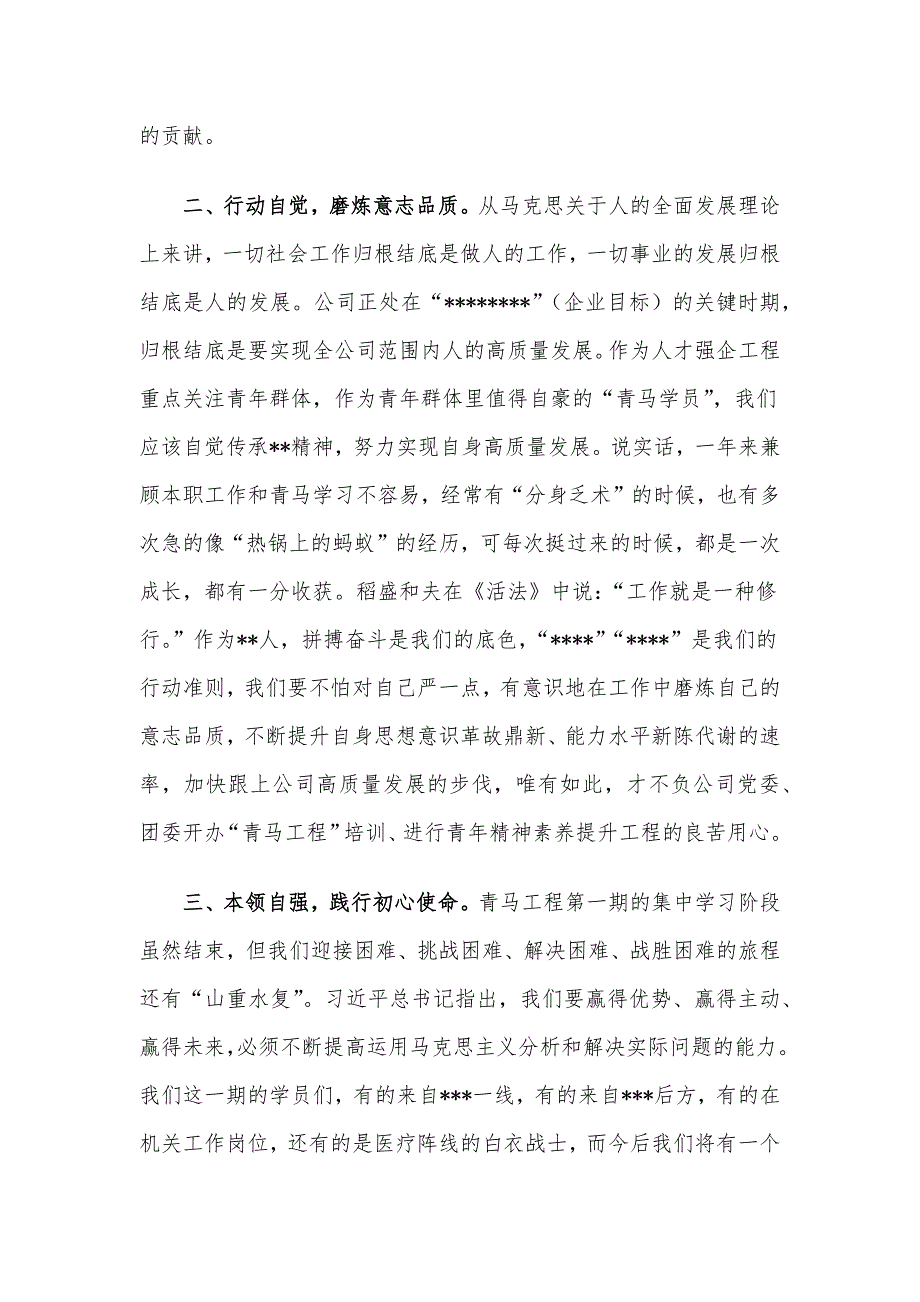 的贡献。
二、行动自觉，磨炼意志品质。从马克思关于人的全面发展理论
上来讲，一切社会工作归根结底是做人的工作，一切事业的发展归根
结底是人的发展。公司正处在“********”（企业目标）的关键时期，
归根结底是要实现全公司范围内人的高质量发展。作为人才强企工程
重点关注青年群体，作为青年群体里值得自豪的“青马学员”，我们
应该自觉传承**精神，努力实现自身高质量发展。说实话，一年来兼
顾本职工作和青马学习不容易，经常有“分身乏术”的时候，也有多
次急的像“热锅上的蚂蚁”的经历，可每次挺过来的时候，都是一次
成长，都有一分收获。稻盛和夫在《活法》中说：“工作就是一种修
行。”作为**人，拼搏奋斗是我们的底色，“****”“****”是我们的
行动准则，我们要不怕对自己严一点，有意识地在工作中磨炼自己的
意志品质，不断提升自身思想意识革故鼎新、能力水平新陈代谢的速
率，加快跟上公司高质量发展的步伐，唯有如此，才不负公司党委、
团委开办“青马工程”培训、进行青年精神素养提升工程的良苦用心。
三、本领自强，践行初心使命。青马工程第一期的集中学习阶段
虽然结束，但我们迎接困难、挑战困难、解决困难、战胜困难的旅程
还有“山重水复”。习近平总书记指出，我们要赢得优势、赢得主动、
赢得未来，必须不断提高运用马克思主义分析和解决实际问题的能力。
我们这一期的学员们，有的来自***一线，有的来自***后方，有的在
机关工作岗位，还有的是医疗阵线的白衣战士，而今后我们将有一个